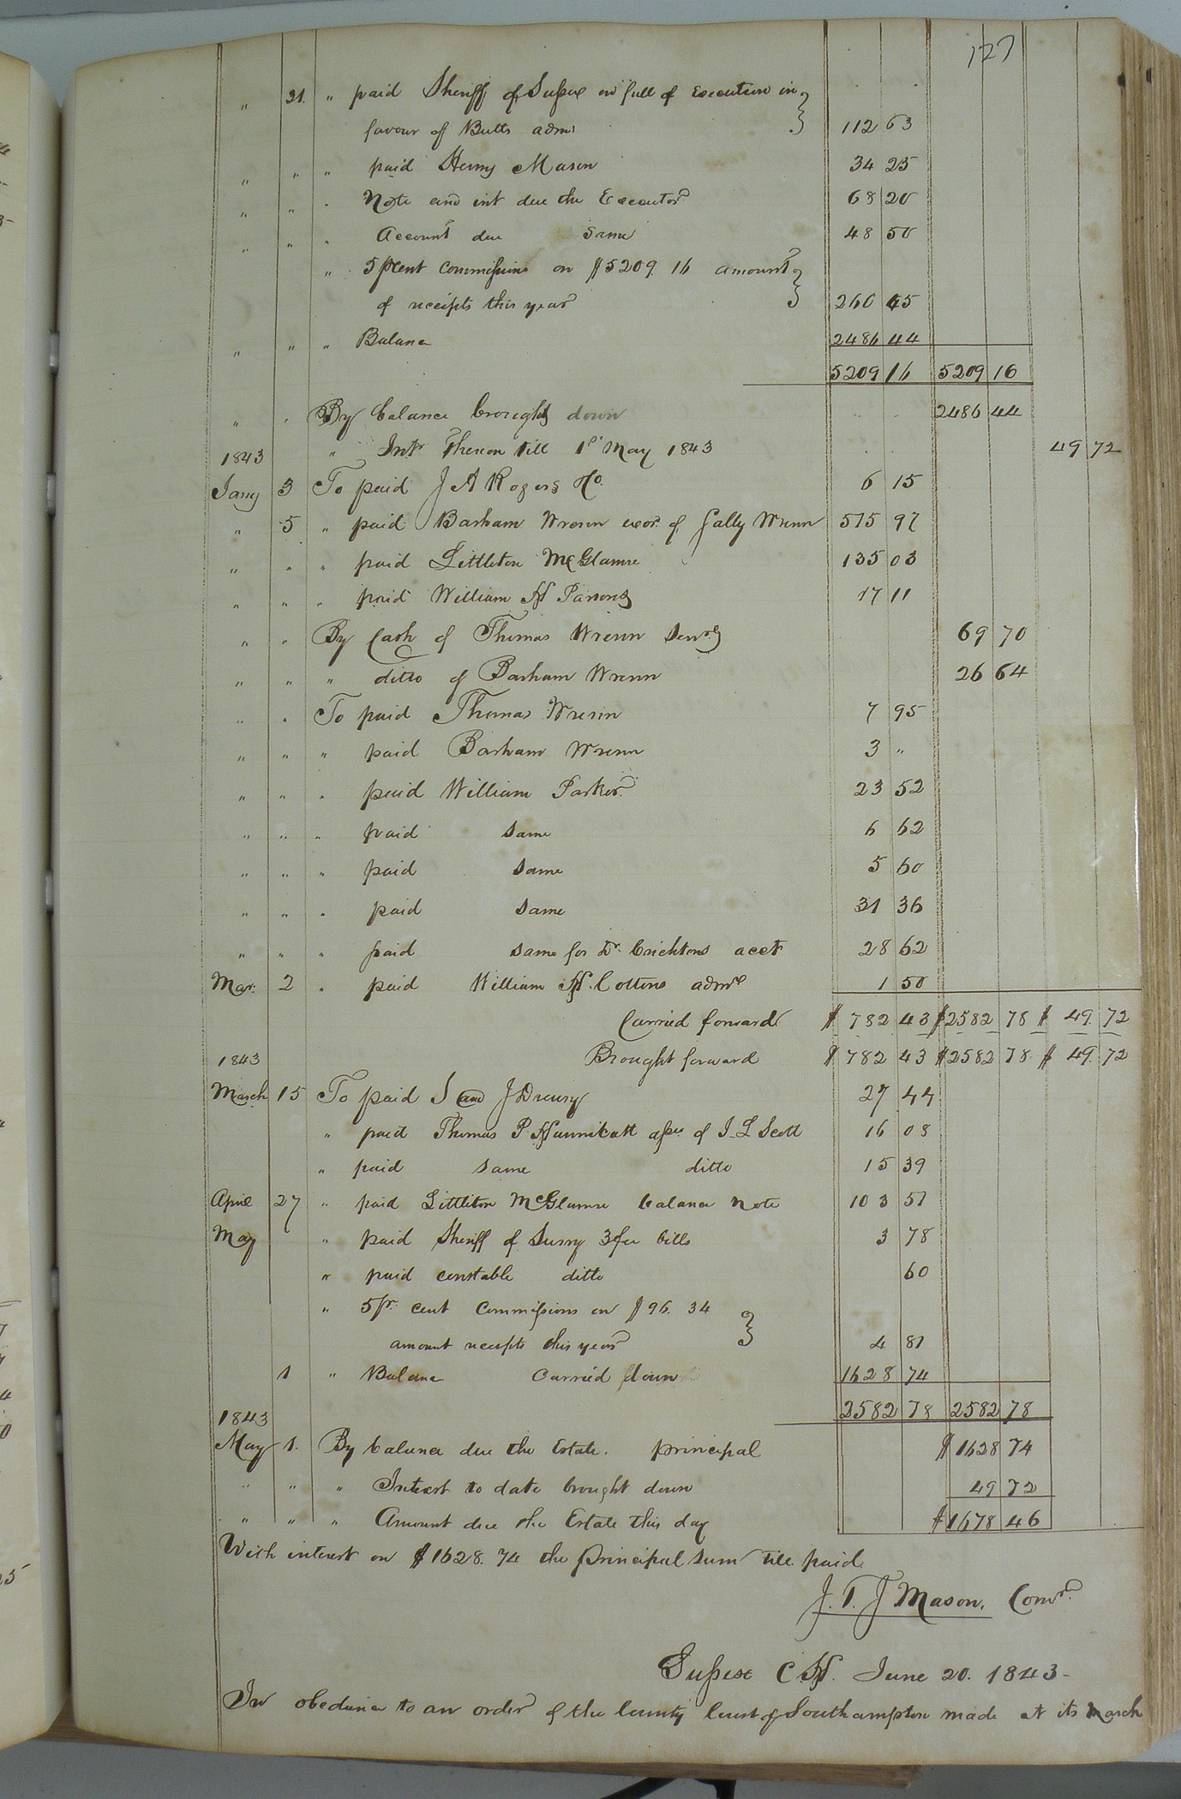 127
" 31. " paid Sheriff of Sussex in full of Execution in
favour of Butts admr 112 63
" " " paid Henry Mason 34 25
" " " Note and int due the Executor 68 20
" " " Account due same 48 50
" 5 pCent Commissions on $5209 16 amount
of receipts this year 260 45
" " " Balance 2486 44
5209 16 5209 16
" " By balance brought down 2486 44
1843 " Int Thereon till 1st May 1843 49 72
Jany 3 To paid J A Rogers &Co 6 15
" 5 " paid Barham Wrenn exor of Sally Wrenn 575 97
" " " paid Littleton McGlamre 135 03
" " " paid William H Parsons 17 11
" " By Cash of Thomas Wrenn Senr 69 70
" " " ditto of Barham Wrenn 26 64
" " To paid Thomas Wrenn 7 95
" " " paid Barham Wrenn 3 "
" " " paid William Parker 23 52
" " " paid same 6 62
" " " paid same 5 60
" " " paid same 31 36
" " " paid same for Dr. Crichtons acct 28 62
Mar. 2 " paid William H. Cottons admr 1 50
Carried forward $ 782 43 $2582 78 $ 49 72
1843 Brought forward $ 782 43 $2582 78 $ 49 72
March 15 To paid J and J Drewry 27 44
" paid Thomas P. Hunnicutt assee of J. L Scott 16 08
" paid same ditto 15 39
April 27 " paid Littleton McGlamre balance note 103 51
May " paid Sheriff of Surry 3 fee bills 3 78
" paid constable ditto 60
" 5 pr. cent Commissions on $96. 34
amount receipts this year 4 81
1 " Balance Carried down 1628 74
2582 78 2582 78
1843
May 1. By balance due the Estate. principal $1628 74
" " " Interest to date brought down 49 72
" " " Amount due the Estate this day $1678 46
With interest on $1628. 74 the principal sum till paid
J. T. J Mason. Comr.
Sussex C H. June 20. 1843-
In obedience to an order of the County Court of Southampton made at its March